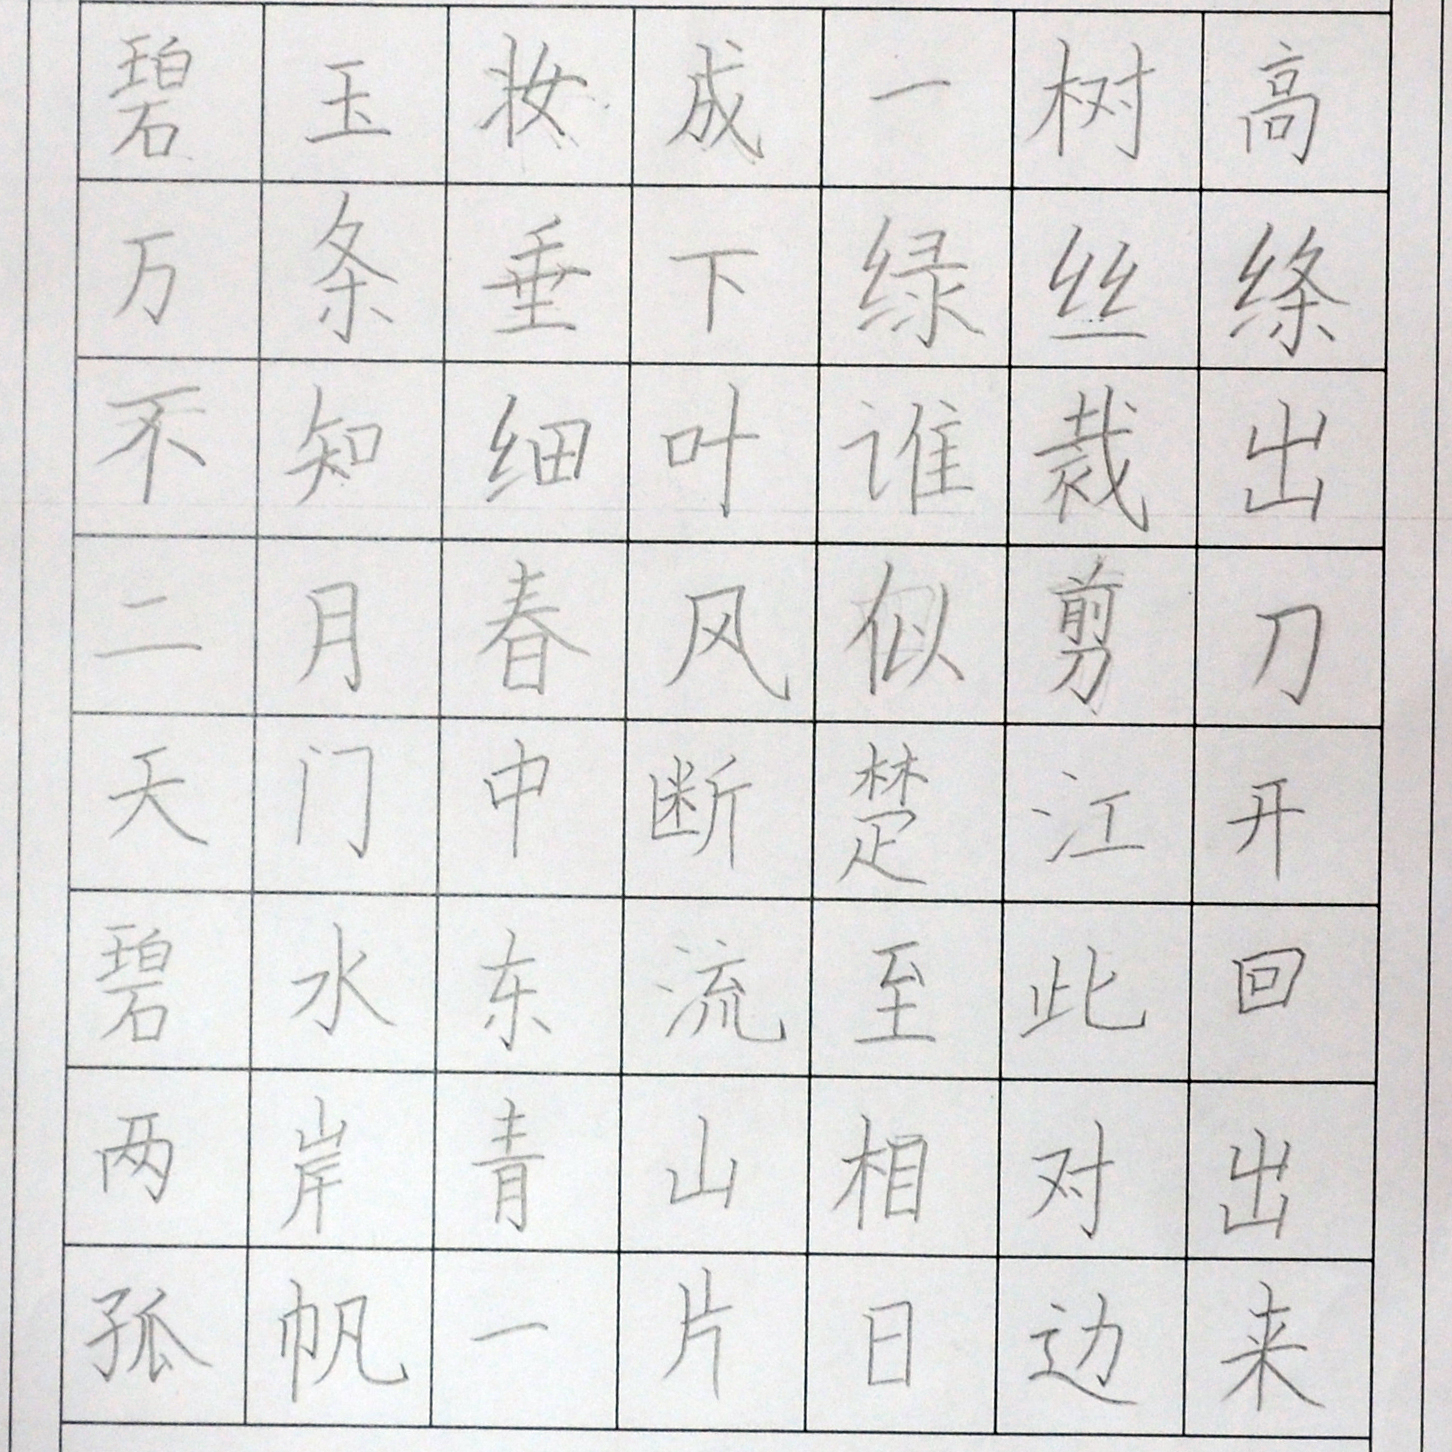 碧玉妆成一树高
万条垂下绿丝绦
不知细叶谁裁出
二月春风似剪刀
天门中断楚江开
碧水东流至此回
两岸青山相对出
孤帆一片日边来